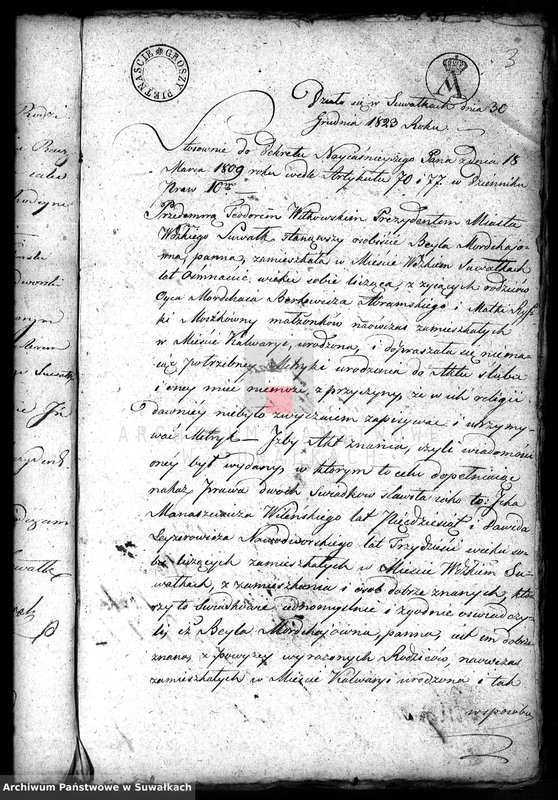 3
GROSZY PIĘTNAŚCIE
Działo się w Suwałkach dnia 30
Grudnia 1823 Roku.
Stosownie do Dekretu Nayiaśnieyszego Pana z dnia 18
Marca 1809 roku wedle Artykułu 70 i 77. w Dzienniku
Praw 10m
Przedemną Teodorem Witkowskim Prezydentem Miasta
Wdzkiego Suwałk stanąwszy osobiście Beyla Mordchajo=
wna, panna, zamieszkała w Mieście Wdzkim Suwałkach
lat Ośmnaście wieku sobie licząca, z zyiących rodziców
Oyca Mordchaia Berkowicza Abramskiego i Matki
Moszkowny małżonków naowczas zamieszkałych
w Mieście Kalwaryi, urodzona, i dopraszała się niema=
iąc potrzebney Metryki urodzenia do Aktu ślubu
i oney mieć niemoże, z przyczyny, że w ich religii
dawniey niebyło zwyczaiem zapisywać i utrzymy=
wać Metryk — Iżby Akt znania, czyli wiadomości
oney był wydany, w którym to celu dopełniaiąc
nakaz Prawa dwóch Swiadków stawiła iako to: Icka
Manaszewicza Wileńskiego lat Pięćdziesiąt, i Dawida
Leyzerowicza Nawodworskiego lat Trzydzieści wieku so=
bie liczących zamieszkałych w Mieście Wdzkim Su=
wałkach, z zamieszkania i osób dobrze znanych, któ=
rzy to Swiadkowie iednomyślnie i zgodnie oświadczy=
li, iż Beyla Mordchajowna, panna, iest im dobrze
znana, z powyżey wyrażonych Rodziców, naowczas
zamieszkałych w Mieście Kalwaryi urodzona i tak
wsposobie
ARCHIWUM PAŃSTWOWE
W SUWAŁKACH
Archiwum Państwowe w Suwałkach